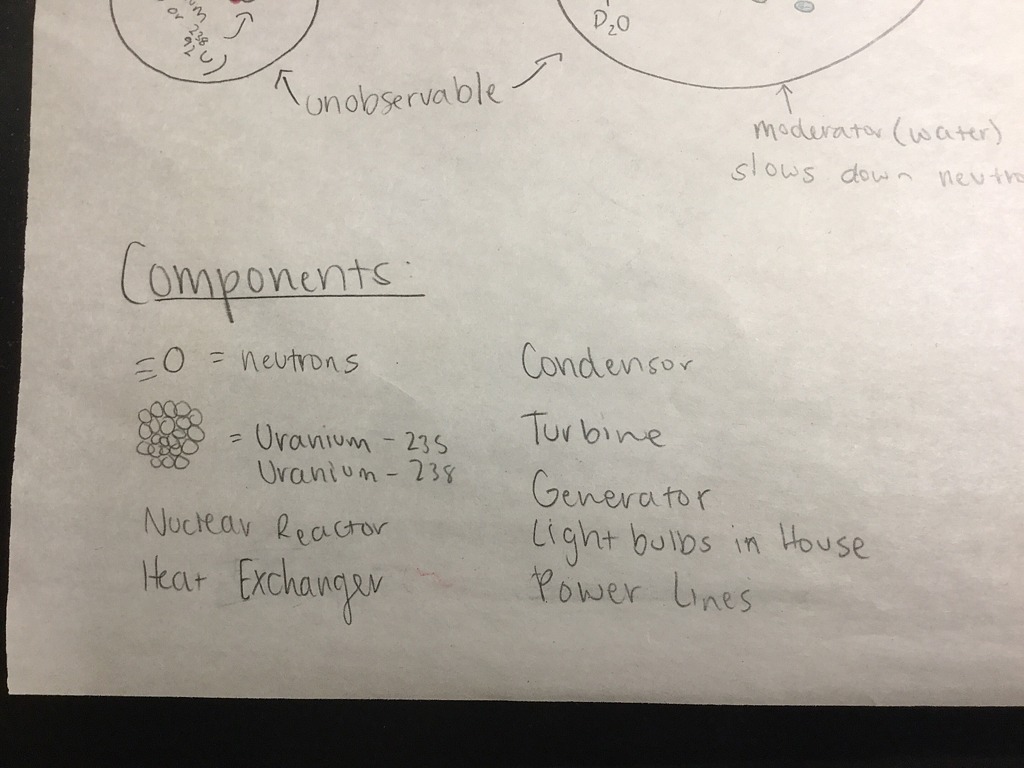 or
238
92 U)
D2O
unobservable
moderator (water)
slows down neutro
Components:
= neutrons
= Uranium - 235
Uranium - 238
Nuclear Reactor
Heat Exchanger
Condensor
Turbine
Generator
Light bulbs in House
Power Lines